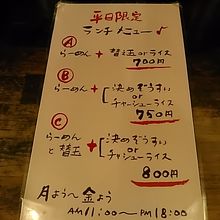 平日限定
ランチメニュー♪
Ⓐ
らーめん + 替え玉orライス
700円
Ⓑ
らーめん + 決めぞうすい
or
チャーシューライス
750円
Ⓒ
らーめん
と替玉 + 決めぞうすい
or
チャーシューライス
800円
月よう〜金よう
AM11:00〜PM18:00